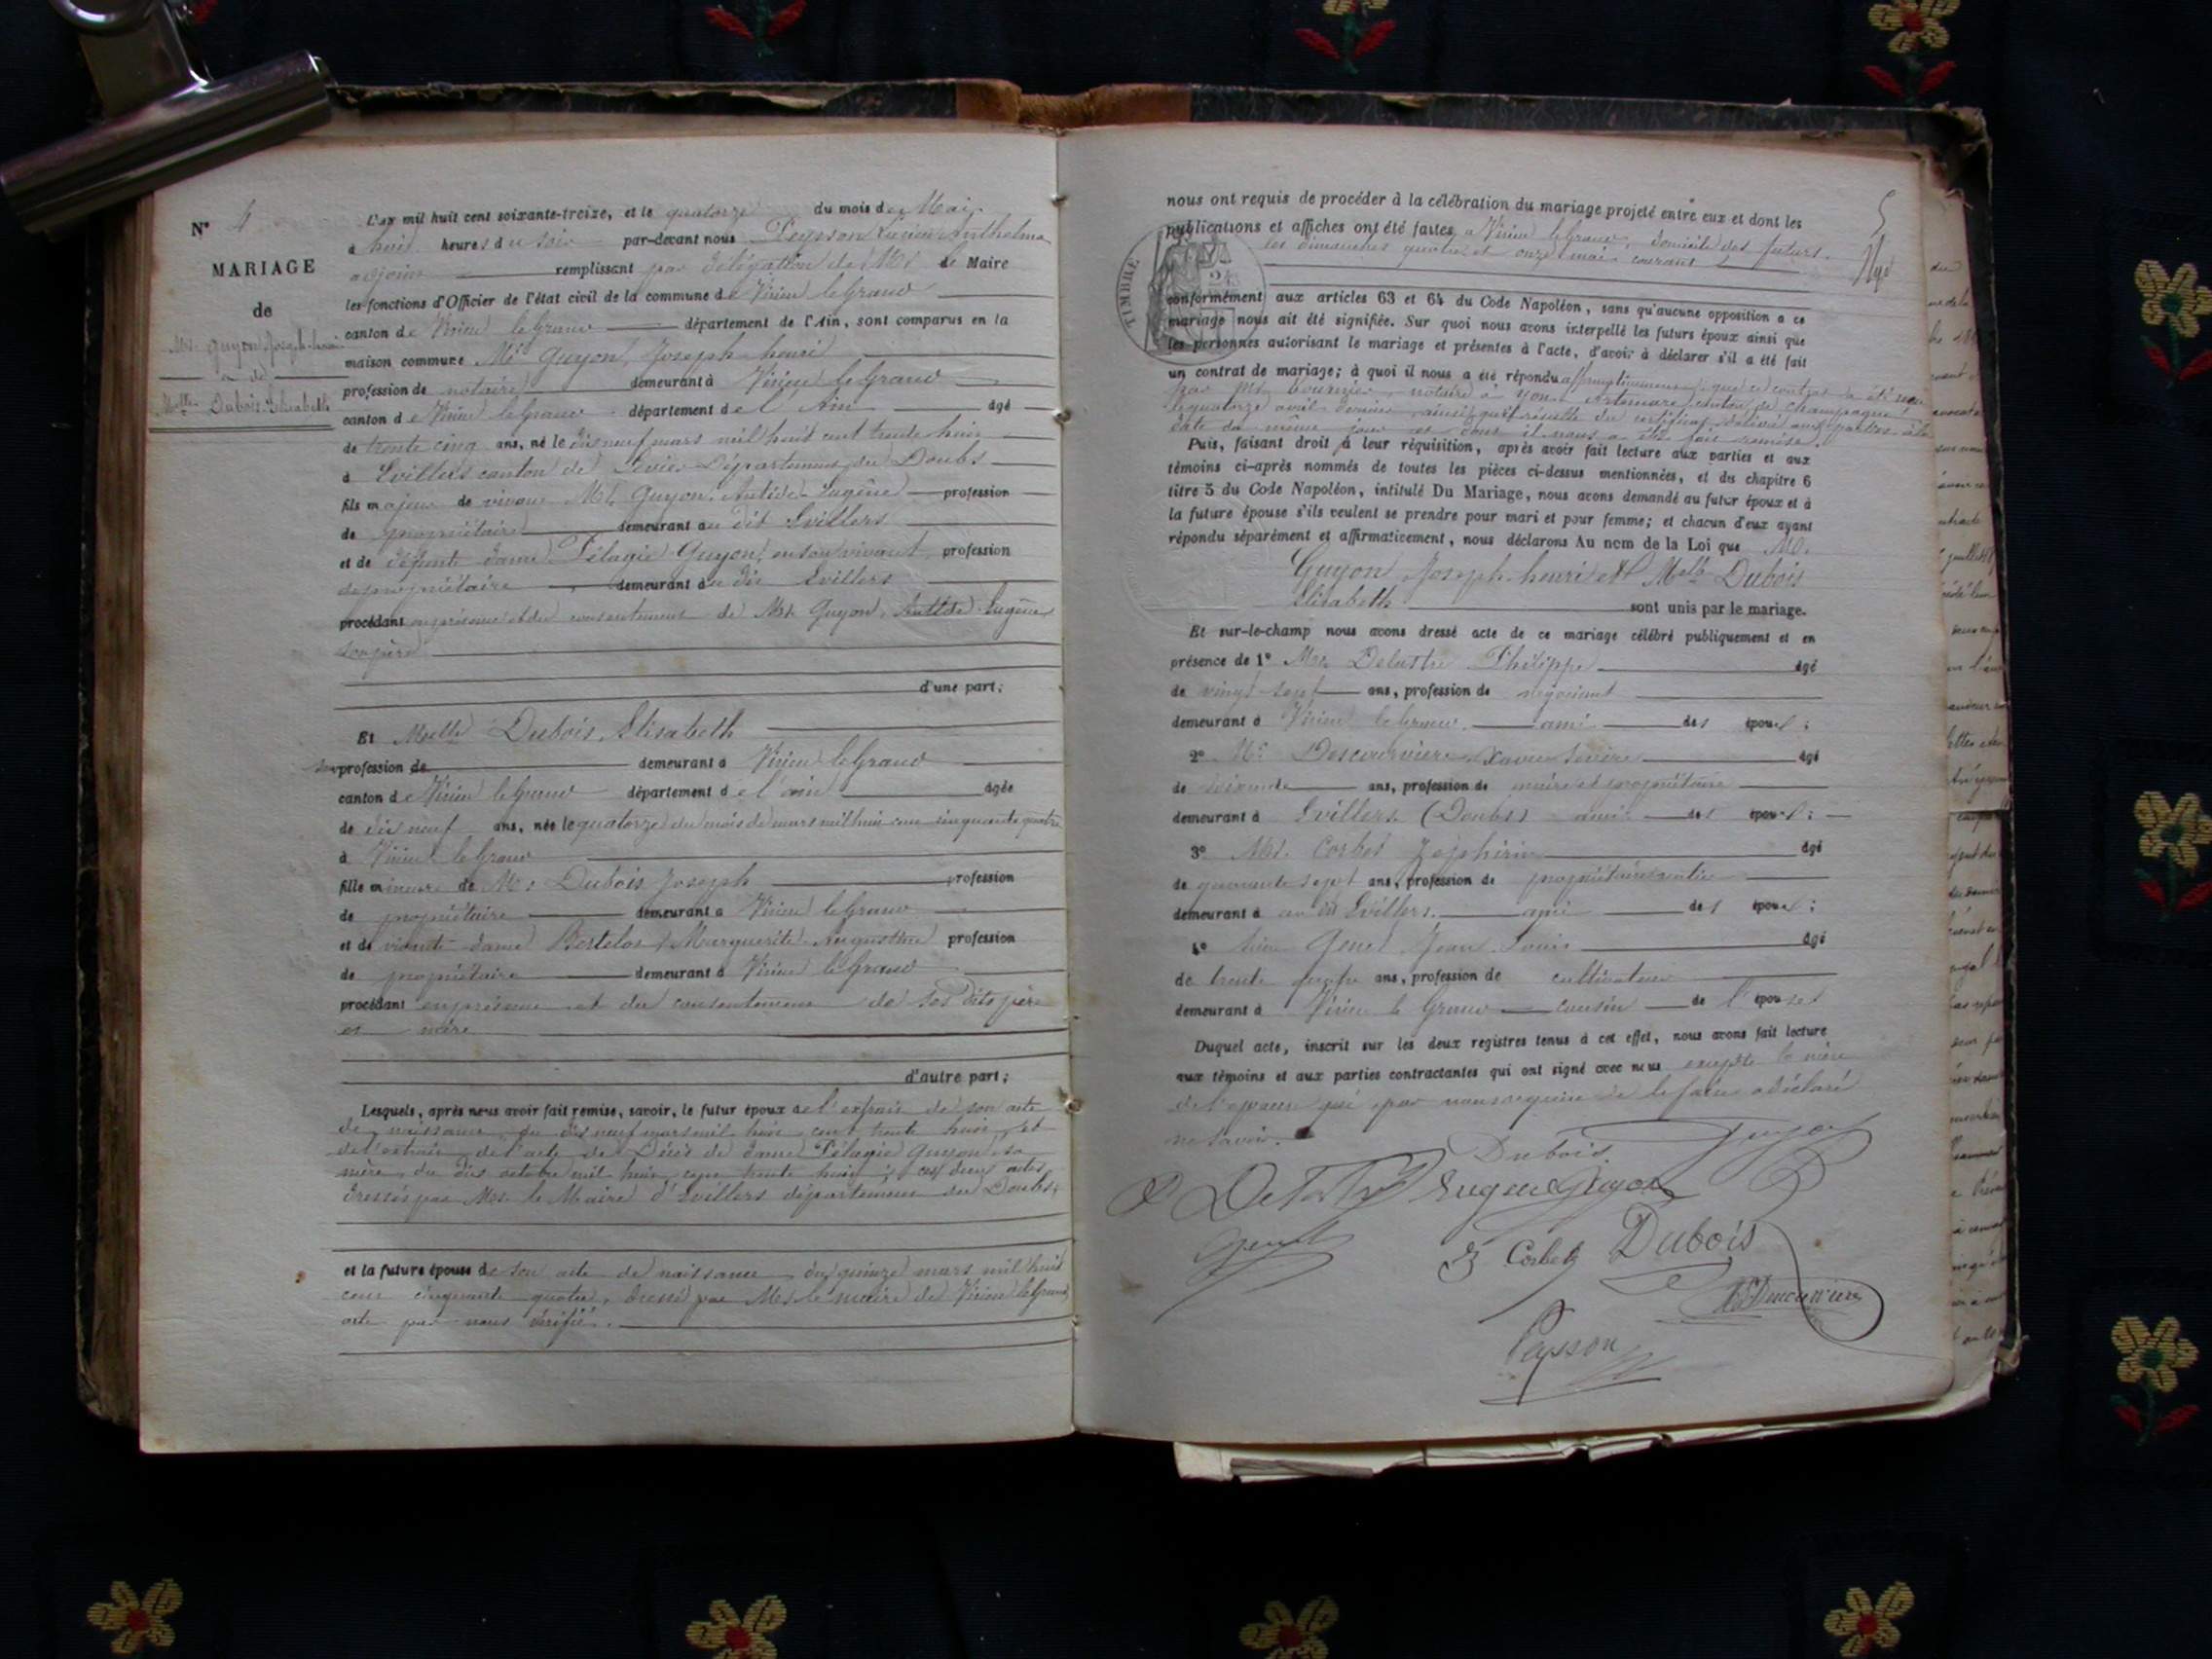 N° 4
MARIAGE
de
Mr. Guyon Joseph-henri
et de
Melle Dubois Elisabeth
L'an mil huit cent soixante-treize, et le quatorze du mois de Mai
à huit heures du soir par-devant nous Peysson Lucien Anthelme
adjoint remplissant par délégation de Mr le Maire
les fonctions d'Officier de l'état civil de la commune de Virieu le Grand
canton de Virieu le Grand département de l'Ain, sont comparus en la
maison commune Mr Guyon, Joseph-henri
profession de notaire demeurant à Virieu le Grand
canton de Virieu le Grand département de l'Ain âgé
de trente cinq ans, né le dix neuf mars mil huit cent trente huit
à Evillers canton de Levier Département du Doubs
fils majeur de vivant Mr. Guyon, Antide-Eugène profession
de propriétaire demeurant au dit Evillers
et de défunte dame Pélagie Guyon, en son vivant, profession
de propriétaire demeurant au dit Evillers
procédant en présence et du consentement de Mr. Guyon, Antide-Eugène
son père
d'une part;
Et Melle Dubois, Elisabeth
sans profession de demeurant à Virieu le Grand
canton de Virieu le Grand département de l'ain âgée
de dix neuf ans, née le quatorze du mois de mars mil huit cent cinquante quatre
à Virieu le Grand
fille mineure de Mr Dubois Joseph profession
de propriétaire demeurant à Virieu le Grand
et de vivante dame Marguerite Augustine profession
de propriétaire demeurant à Virieu le Grand
procédant en présence et du consentement de ses dits père
et mère
d'autre part;
Lesquels, après nous avoir fait remise, savoir, le futur époux de l'extrait de son acte
de naissance du dix neuf mars mil huit cent trente huit, et
de l'extrait de l'acte de Décès de dame Pélagie Guyon, sa
mère, du dix octobre mil huit cent trente huit; ces deux actes
dressés par Mr. le Maire d'Evillers département du Doubs;
et la future épouse de son acte de naissance du quinze mars mil huit
cent cinquante quatre, dressé par Mr. le maire de Virieu le Grand
acte par nous vérifié.
nous ont requis de procéder à la célébration du mariage projeté entre eux et dont les
publications et affiches ont été faites à Virieu le Grand, domicile des futurs
les dimanches quatre et onze mai courant
TIMBRE
conformément aux articles 63 et 64 du Code Napoléon, sans qu'aucune opposition à ce
mariage nous ait été signifiée. Sur quoi nous avons interpellé les futurs époux ainsi que
les personnes autorisant le mariage et présentes à l'acte, d'avoir à déclarer s'il a été fait
un contrat de mariage; à quoi il nous a été répondu affirmativement, que ce contrat a été reçu
par Me. notaire à Artemare canton de Champagne
le quatorze avril dernier, ainsi qu'il résulte du certificat délivré aux parties à la
date du même jour et dont il nous a été fait remise.
Puis, faisant droit à leur réquisition, après avoir fait lecture aux parties et aux
témoins ci-après nommés de toutes les pièces ci-dessus mentionnées, et du chapitre 6
titre 5 du Code Napoléon, intitulé Du Mariage, nous avons demandé au futur époux et à
la future épouse s'ils veulent se prendre pour mari et pour femme; et chacun d'eux ayant
répondu séparément et affirmativement, nous déclarons Au nom de la Loi que Mr.
Guyon Joseph-henri et Melle Dubois
Elisabeth sont unis par le mariage.
Et sur-le-champ nous avons dressé acte de ce mariage célébré publiquement et en
présence de 1° Mr. Philippe âgé
de vingt sept ans, profession de négociant
demeurant à Virieu le Grand ami des époux;
2° Mr. Descourvieres Xavier âgé
de soixante ans, profession de maire et propriétaire
demeurant à Evillers (Doubs) ami des époux;
3° Mr. Corbet Zéphirin âgé
de quarante sept ans, profession de propriétaire rentier
demeurant à au dit Evillers. ami des époux;
4° Genet Jean Louis âgé
de trente quatre ans, profession de cultivateur
demeurant à Virieu le Grand cousin de l'épouse
Duquel acte, inscrit sur les deux registres tenus à cet effet, nous avons fait lecture
aux témoins et aux parties contractantes qui ont signé avec nous excepté la mère
de l'épouse qui, par nous requise de le faire a déclaré
ne savoir.
Dubois Guyon
Eugène Guyon
Genet
Z Corbet Dubois
Descourvieres
Peysson